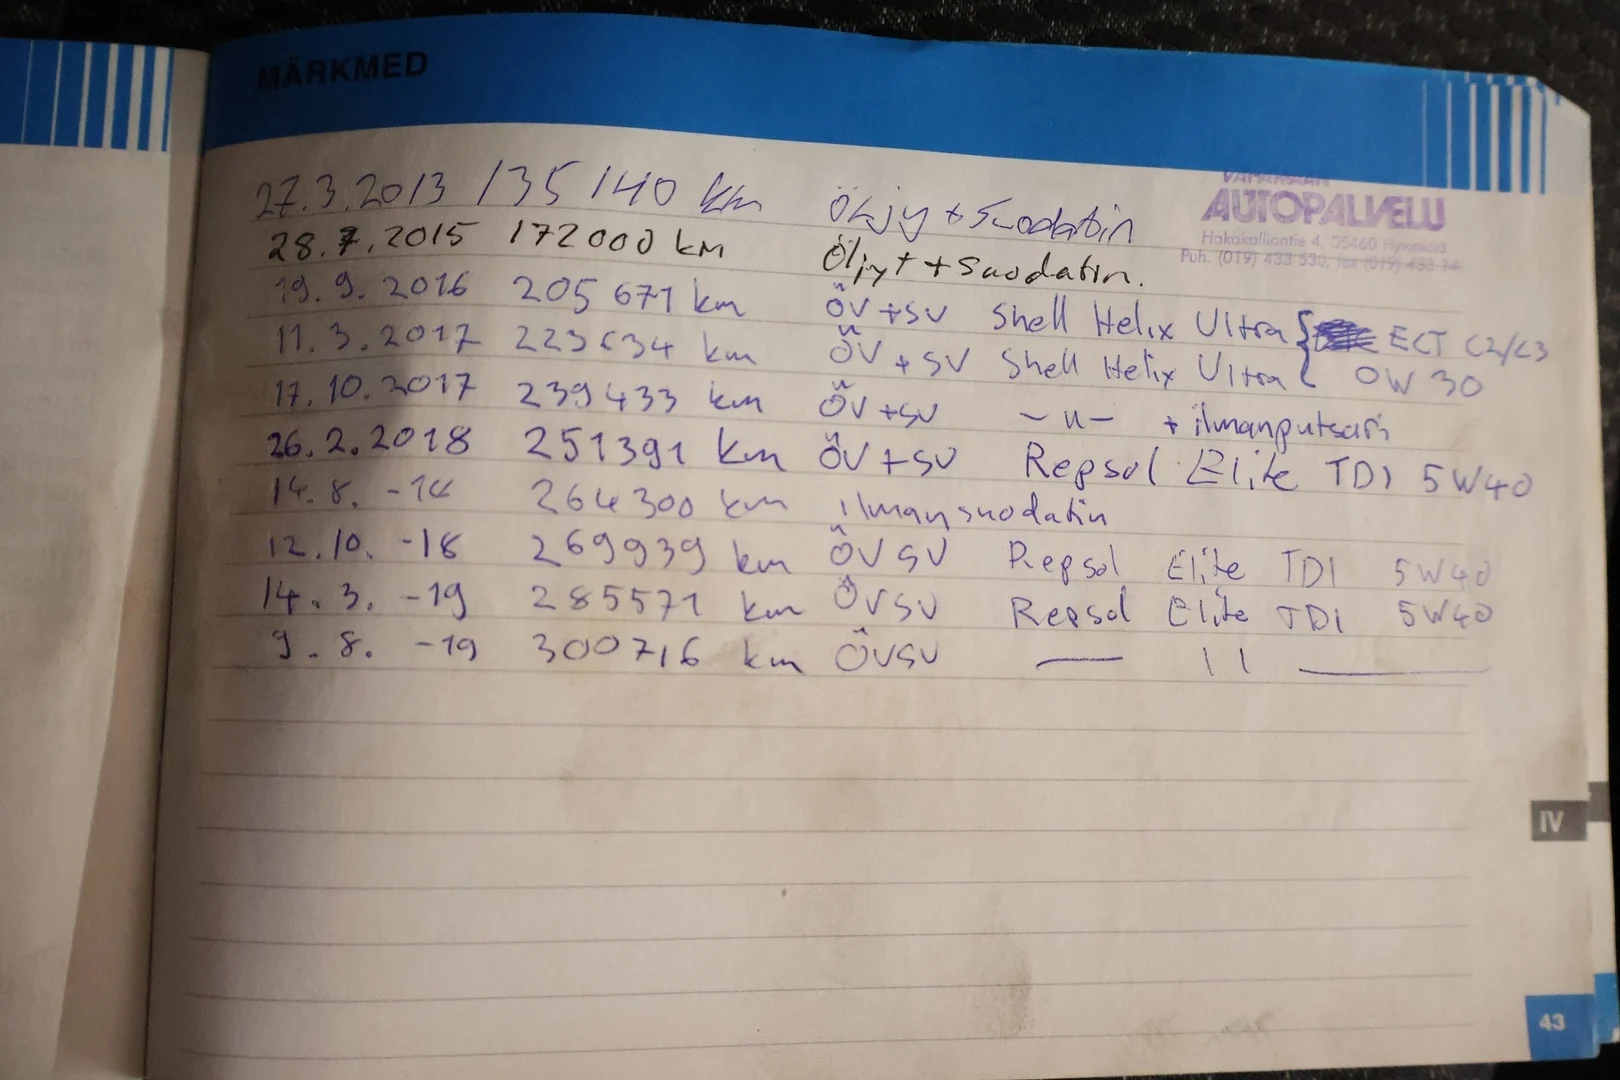 MÄRKMED
27.3.2013 135140 km Öljy + Suodatin
AUTOPALVELU
Hakakalliontie 4, 05460 Hyvinkää
Puh. (019) 433 530, fax (019) 433 14
28.7.2015 172000 km Öljyt + Suodatin.
19.9.2016 205671 km ÖV + SV Shell Helix Ultra { ECT C2/C3
11.3.2017 223634 km ÖV + SV Shell Helix Ultra { 0W30
17.10.2017 239433 km ÖV + SV -"- + ilmanputsari
26.2.2018 251391 km ÖV + SV Repsol Elite TDI 5W40
14.8. -18 264300 km ilmansuodatin
12.10. -18 269939 km ÖV SV Repsol Elite TDI 5W40
14.3. -19 285571 km ÖVSV Repsol Elite TDI 5W40
9.8. -19 300716 km ÖVSV — 11 —
IV
43